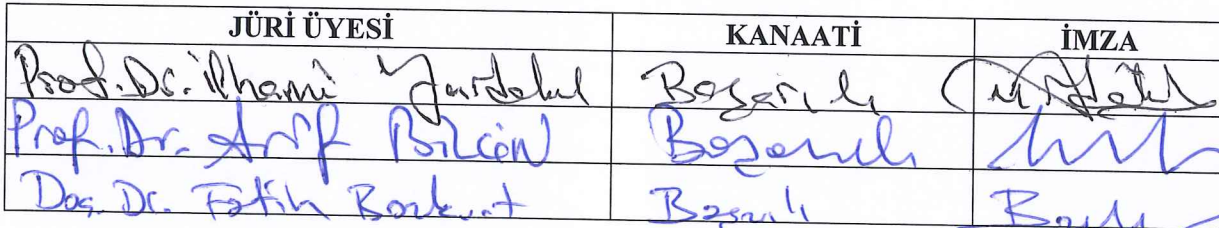 JÜRİ ÜYESİ KANAATİ İMZA
Prof. Dr. İlhami Yurdakul Başarılı
Prof. Dr. Arif BİLGİN Başarılı
Doç. Dr. Fatih Bozkurt Başarılı